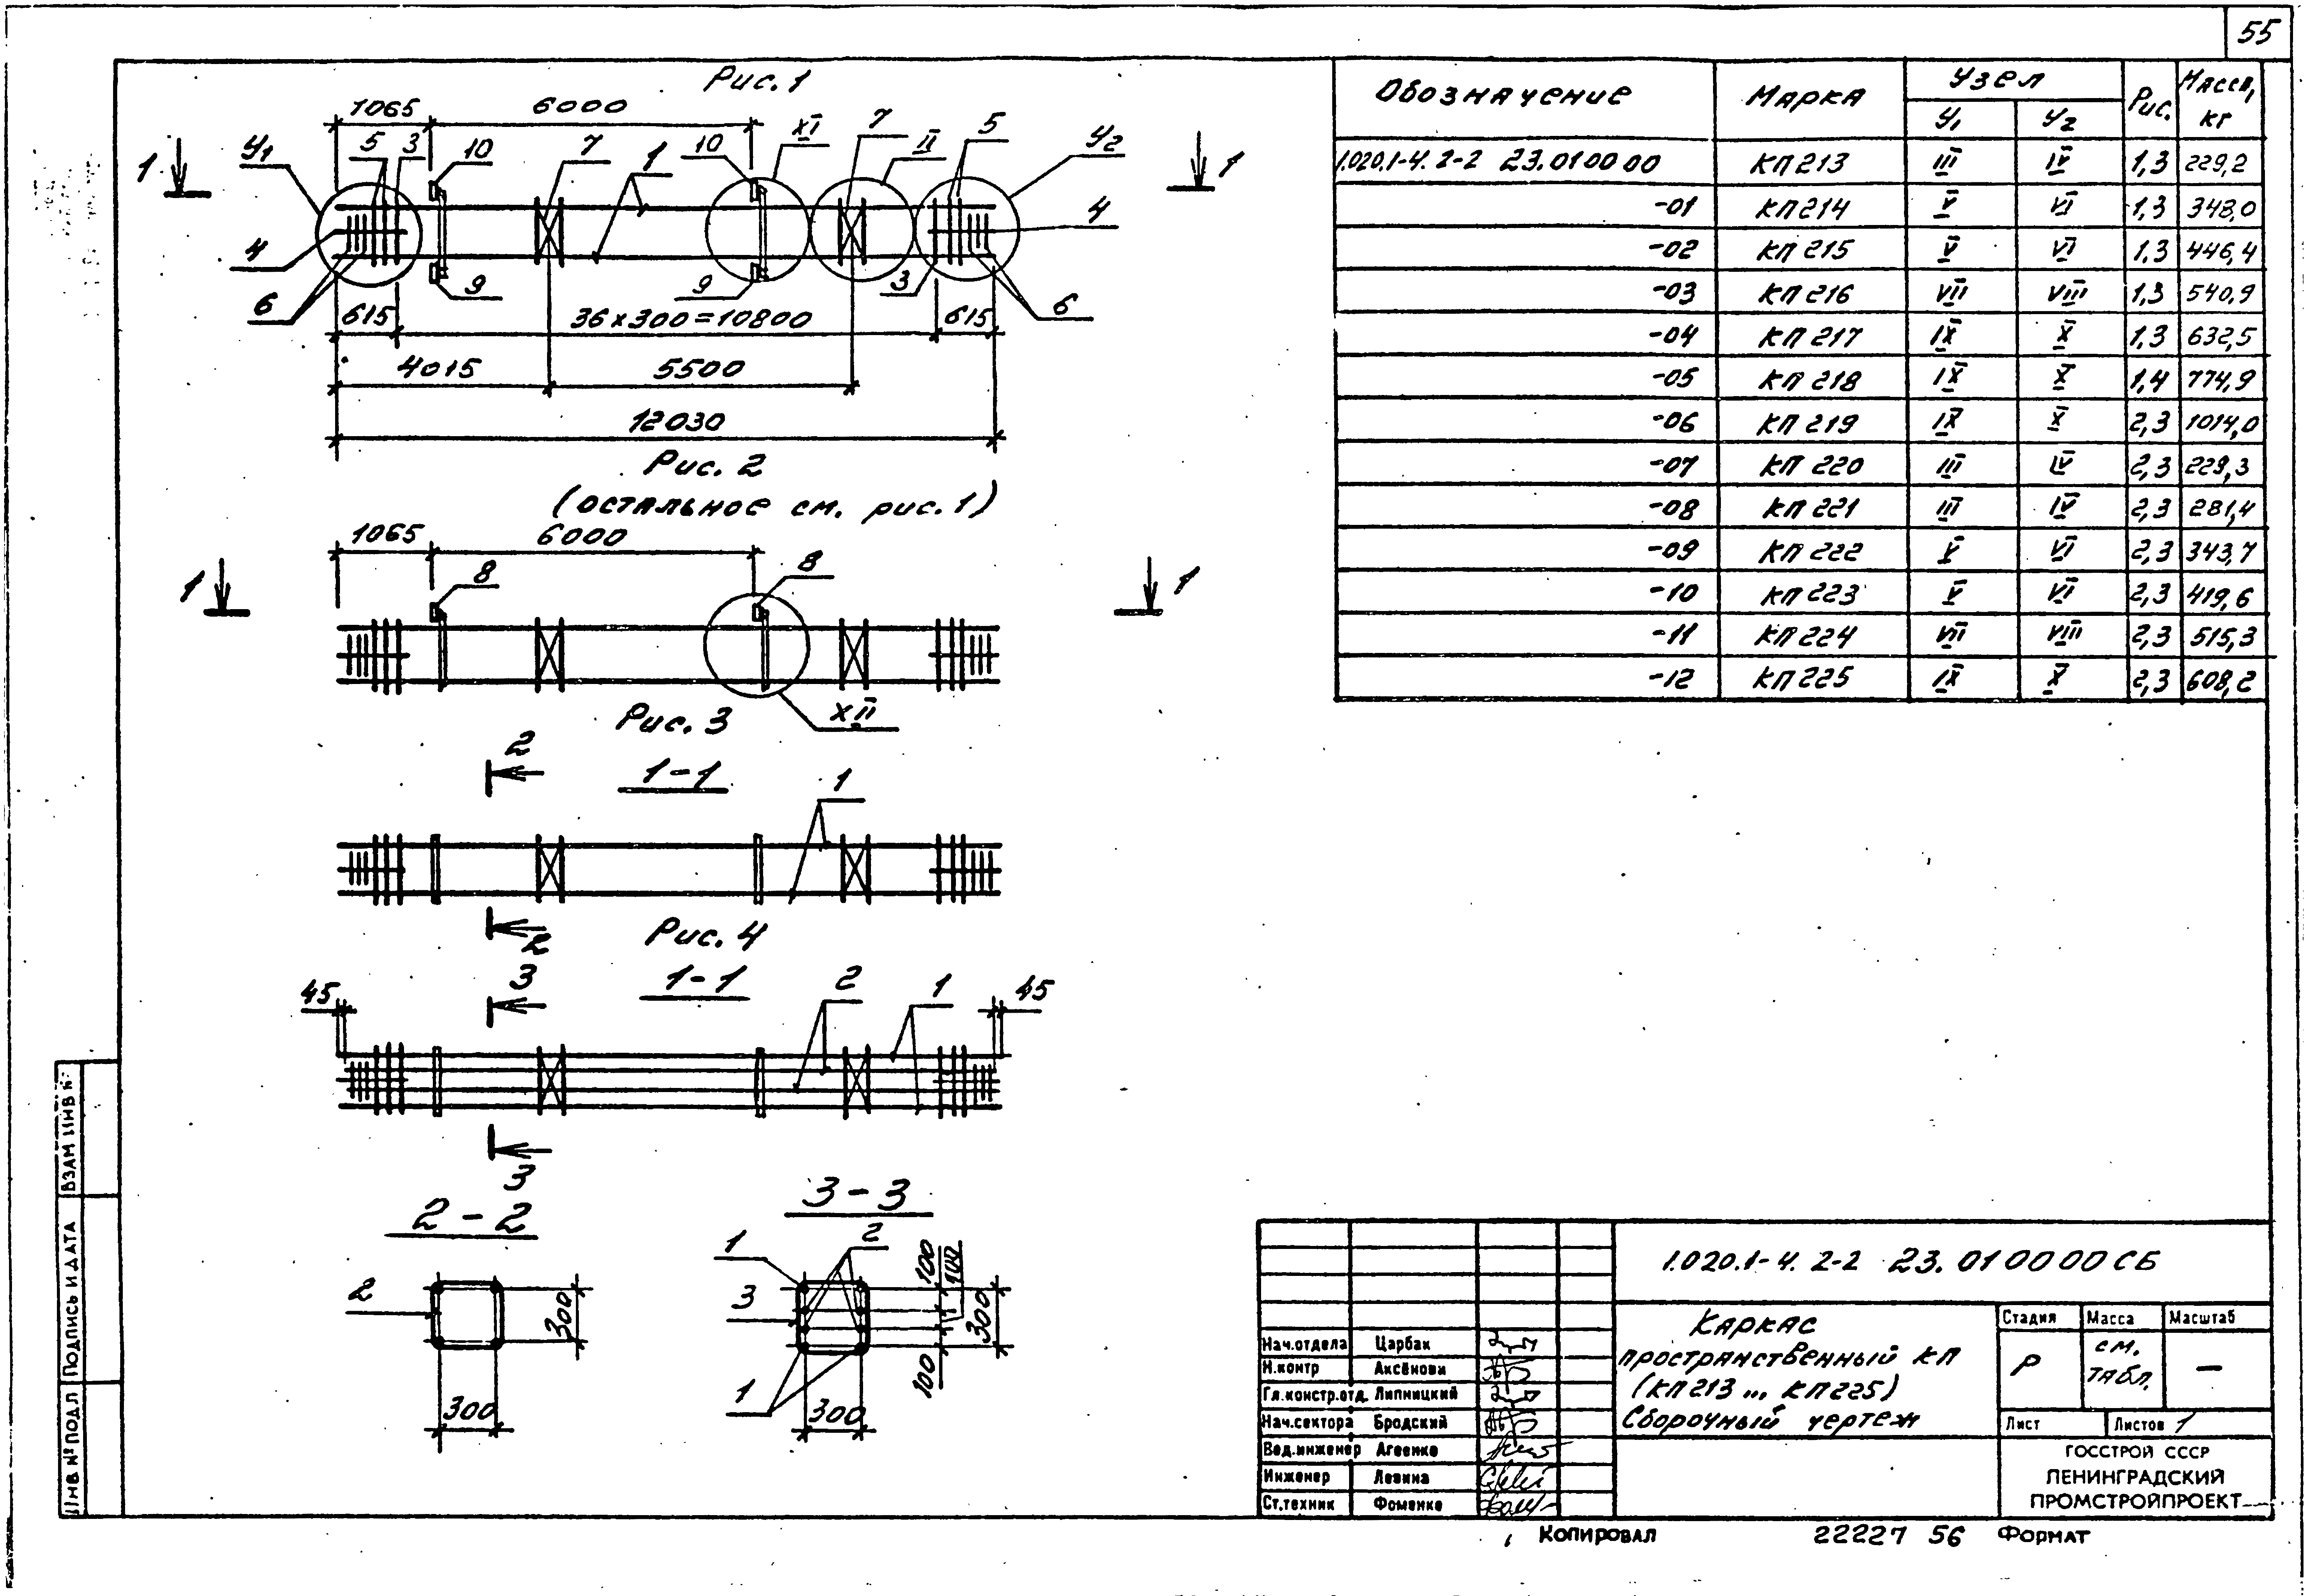 55
Рис. 1
1065
6000
У1
5
3
10
7
1
10
XI
7
II
5
У2
1
1
4
4
9
9
3
6
6
615
36х300=10800
615
4015
5500
12030
Рис. 2
(остальное см. рис. 1)
1065
6000
8
8
1
1
XII
Рис. 3
1-1
2
1
2
Рис. 4
1-1
3
45
2
1
45
3
2-2
2
300
300
3-3
1
2
3
1
100
100
100
300
300
Обозначение Марка Узел Рис. Масса, кг
У1 У2
1.020.1-4. 2-2 23.01 00 00 КП 213 III IV 1,3 229,2
-01 КП 214 V VI 1,3 348,0
-02 КП 215 V VI 1,3 446,4
-03 КП 216 VII VIII 1,3 540,9
-04 КП 217 IX X 1,3 632,5
-05 КП 218 IX X 1,4 774,9
-06 КП 219 IX X 2,3 1014,0
-07 КП 220 III IV 2,3 229,3
-08 КП 221 III IV 2,3 281,4
-09 КП 222 V VI 2,3 343,7
-10 КП 223 V VI 2,3 419,6
-11 КП 224 VII VIII 2,3 515,3
-12 КП 225 IX X 2,3 608,2
1.020.1-4. 2-2 23.01 00 00 СБ
Каркас
пространственный КП
(КП 213 ... КП 225)
Сборочный чертеж
Стадия Масса Масштаб
Р см. табл. –
Лист Листов 1
ГОССТРОЙ СССР
ЛЕНИНГРАДСКИЙ
ПРОМСТРОЙПРОЕКТ
Нач.отдела Царбак
Н.контр Аксёнова
Гл.констр.отд. Липницкий
Нач.сектора Бродский
Вед.инженер Агеенко
Инженер Левина
Ст.техник Фоменко
Копировал 22227 56 Формат
Инв № подл
Подпись и дата
Взам инв №